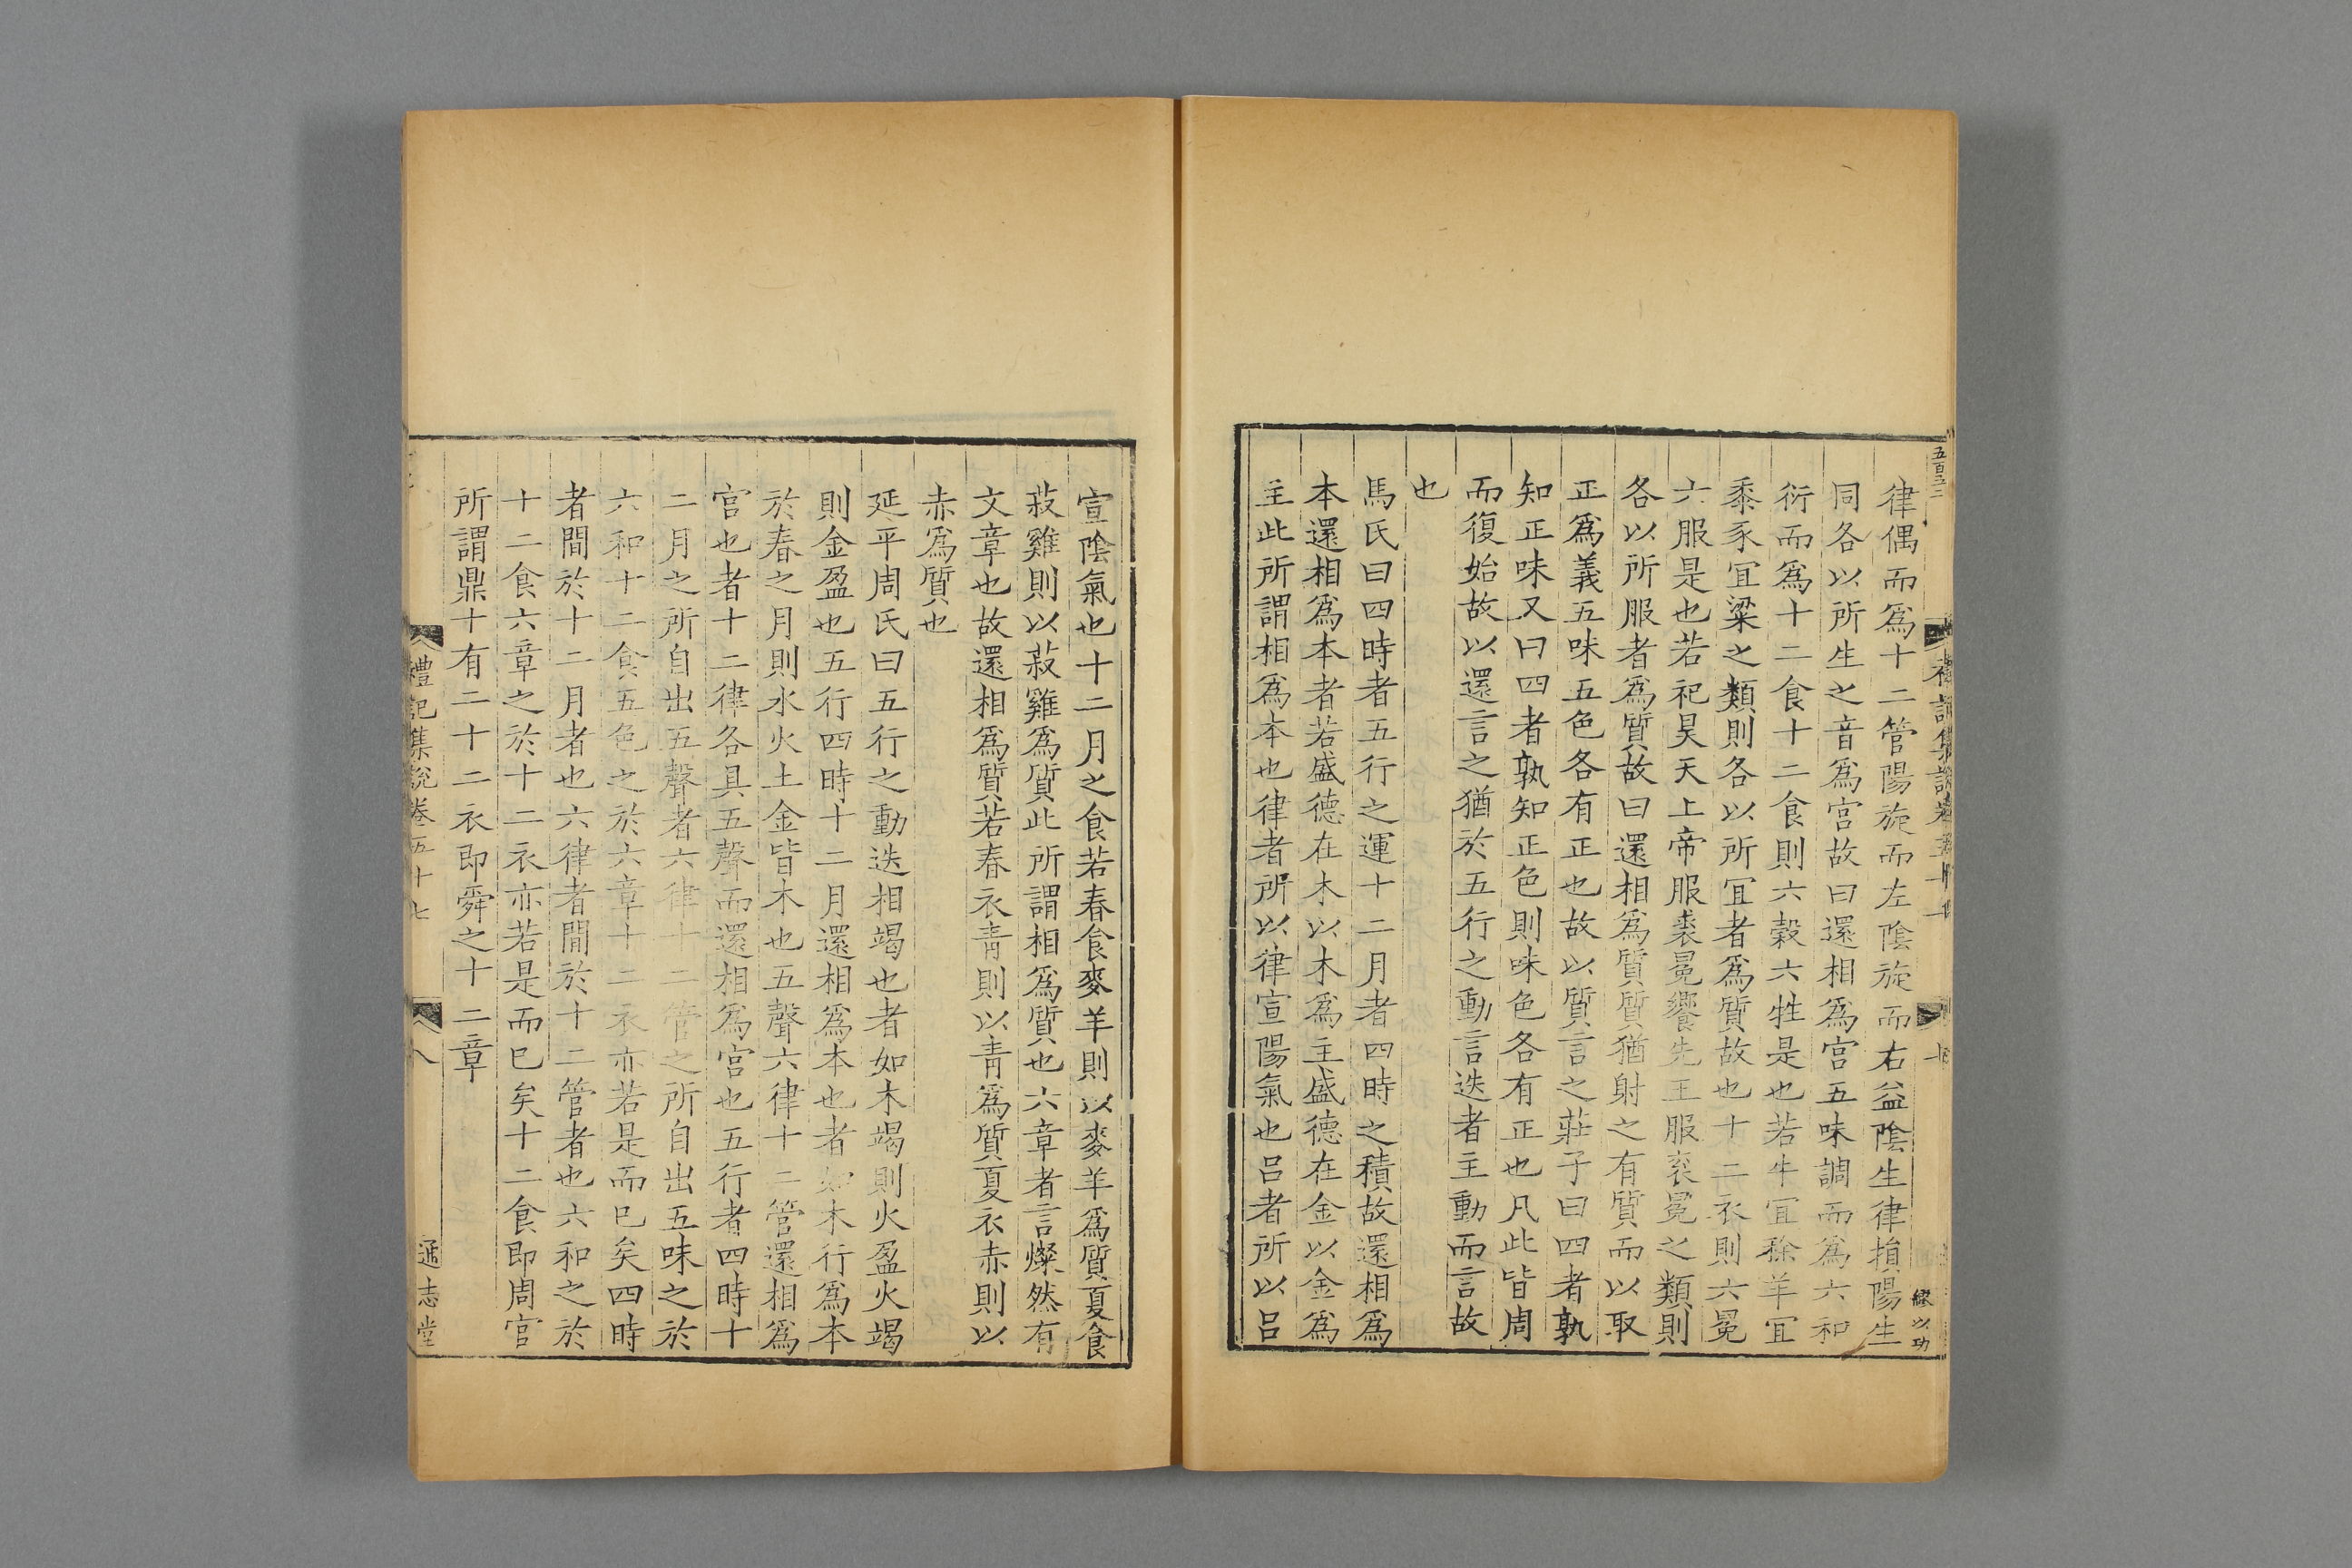 律偶而爲十二管陽旋而左陰旋而右益陰生律損陽生
同各以所生之音爲宮故曰還相爲宮五味調而爲六和
衍而爲十二食十二食則六穀六牲是也若牛宜稌羊宜
黍豕宜粱之類則各以所宜者爲質故也十二衣則六冕
六服是也若祀昊天上帝服裘冕饗先王服衮冕之類則
各以所服者爲質故曰還相爲質質猶射之有質而以取
正爲義五味五色各有正也故以質言之莊子曰四者孰
知正味又曰四者孰知正色則味色各有正也凡此皆周
而復始故以還言之猶於五行之動言迭者主動而言故
也
馬氏曰四時者五行之運十二月者四時之積故還相爲
本還相爲本者若盛德在木以木爲主盛德在金以金爲
主此所謂相爲本也律者所以律宣陽氣也呂者所以呂
宣陰氣也十二月之食若春食麥羊則以麥羊爲質夏食
菽雞則以菽雞爲質此所謂相爲質也六章者言燦然有
文章也故還相爲質若春衣青則以青爲質夏衣赤則以
赤爲質也
延平周氏曰五行之動迭相竭也者如木竭則火盈火竭
則金盈也五行四時十二月還相爲本也者如木行爲本
於春之月則水火土金皆木也五聲六律十二管還相爲
宮也者十二律各具五聲而還相爲宮也五行者四時十
二月之所自出五聲者六律十二管之所自出五味之於
六和十二食五色之於六章十二衣亦若是而已矣四時
者間於十二月者也六律者間於十二管者也六和之於
十二食六章之於十二衣亦若是而已矣十二食即周官
所謂鼎十有二十二衣即舜之十二章
禮記集說卷五十七
八
通志堂